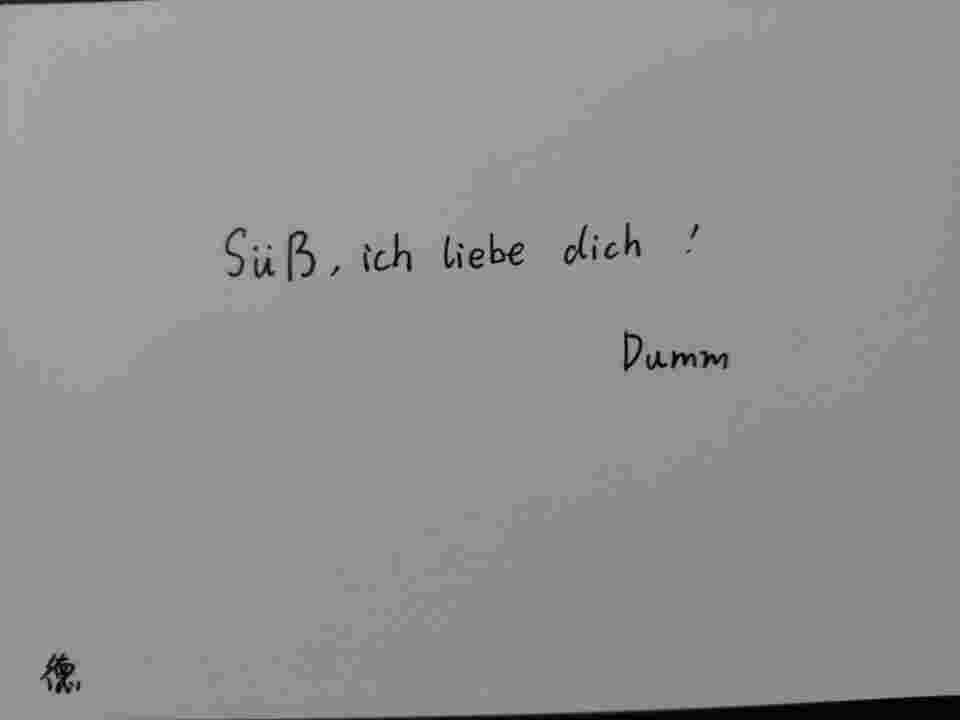 Süß, ich liebe dich !
Dumm
德